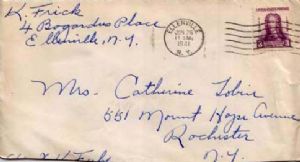 K. Frick
4 Bogardus Place
Ellenville, N.Y.
ELLENVILLE
JUN 26
11 AM
1941
N.Y.
3
Mrs. Catherine Tobin
551 Mount Hope Avenue
Rochester
N.Y.